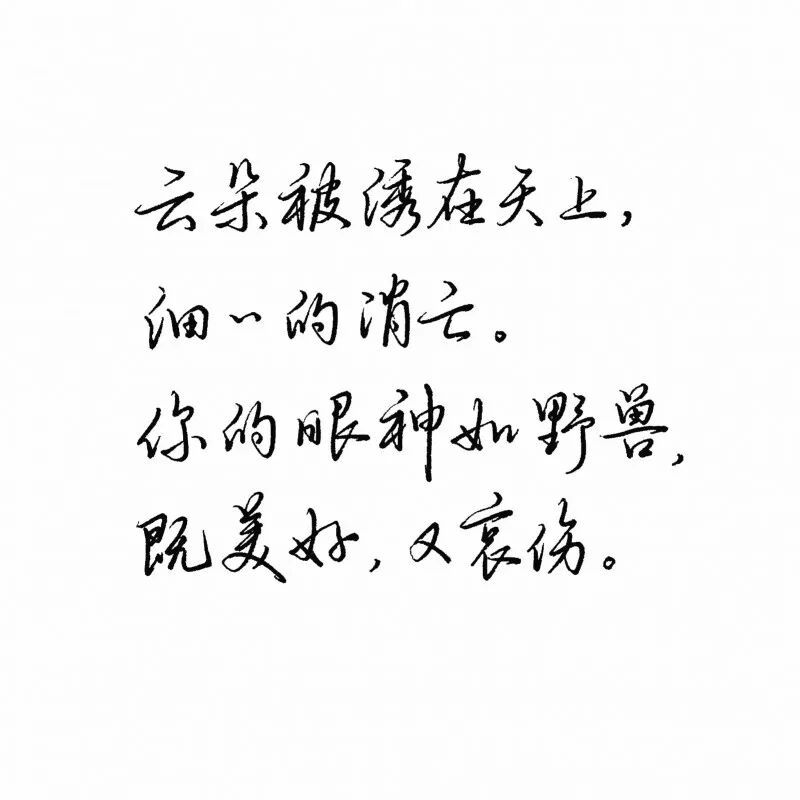 云朵被绣在天上，
细〻的消亡。
你的眼神如野兽，
既美好，又哀伤。